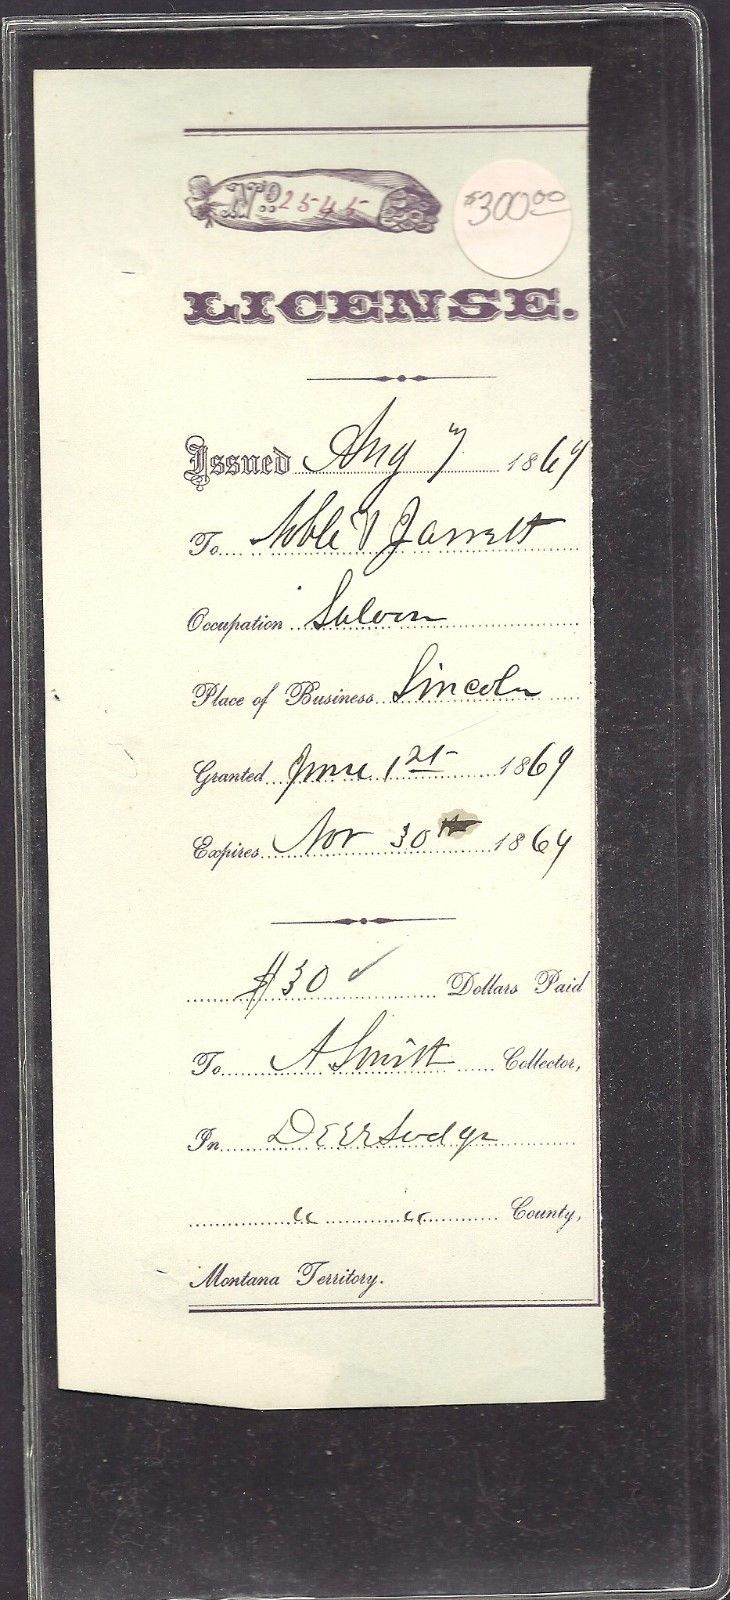 No. 2545
$300.00
LICENSE.
Issued Aug 7 1869
To Noble & Jarrett
Occupation Saloon
Place of Business Lincoln
Granted June 1st 1869
Expires Nov 30th 1869
$30 Dollars Paid
To A Smith Collector,
In Deerlodge
" " County,
Montana Territory.